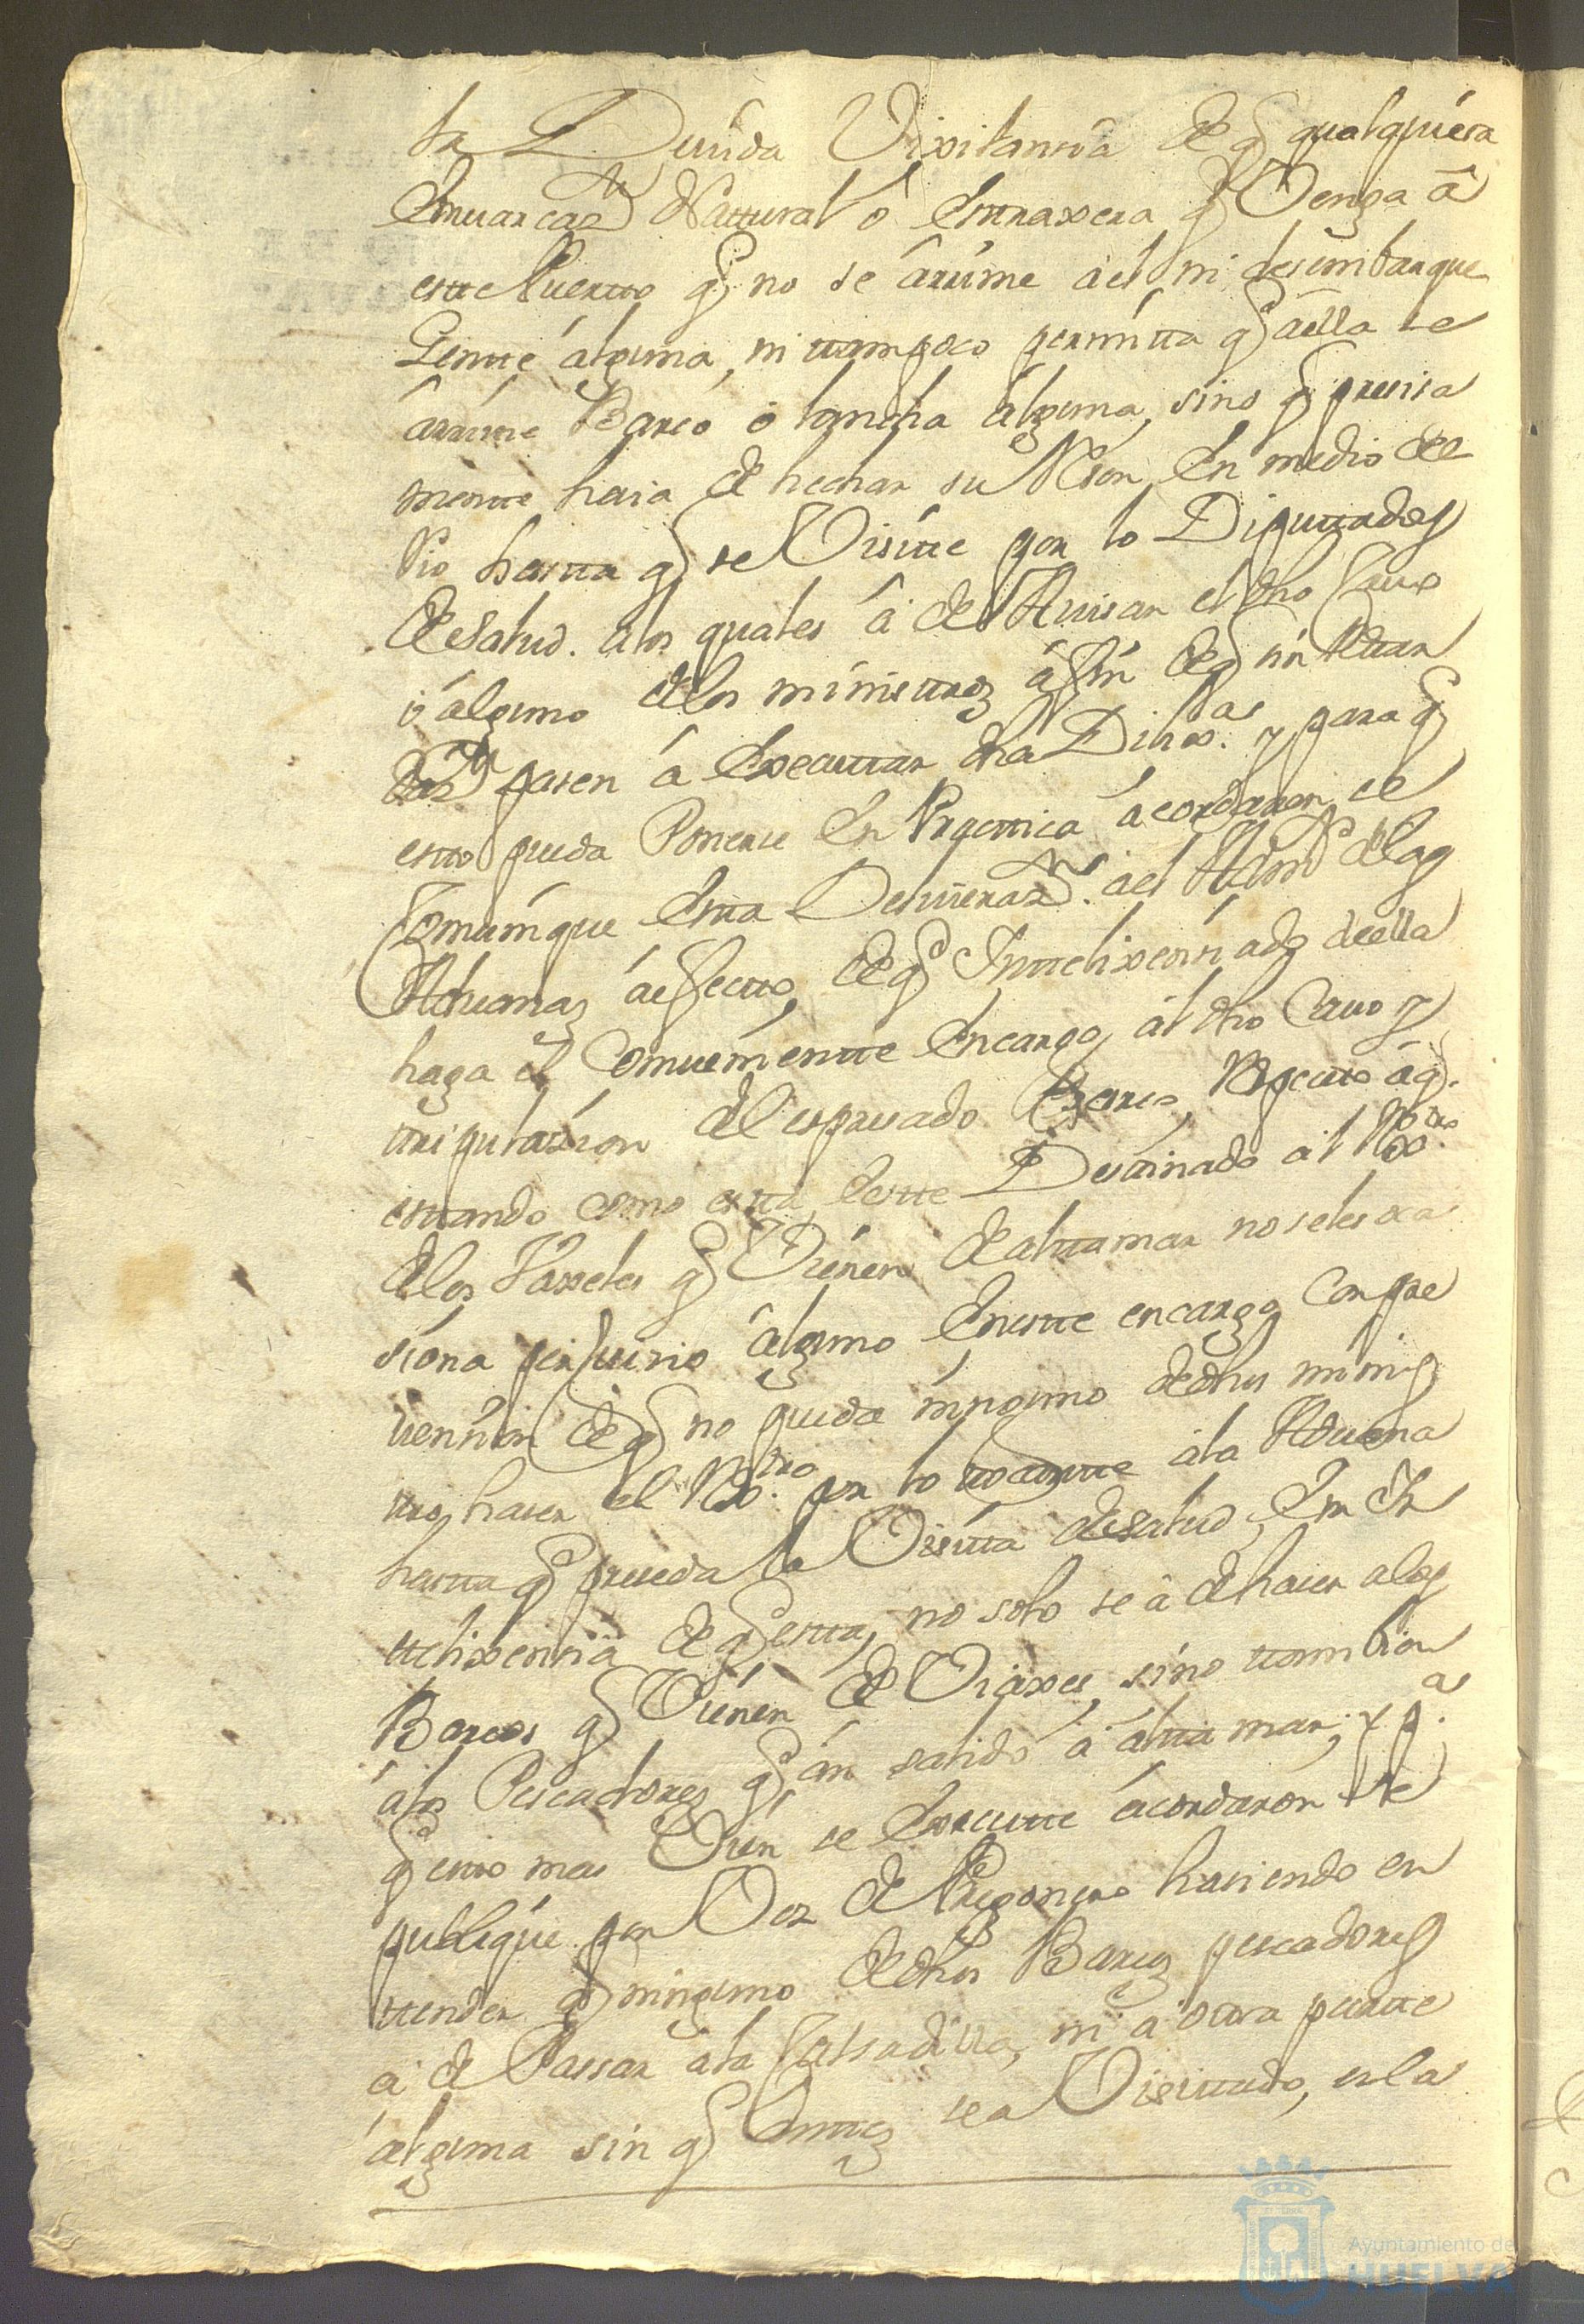 la Devida Vixilancia de q qualquiera
Embarcaz.n Nattural ô Extranxera q Venga â
este Puerto q no se ârrime âel ni desembarque
Gente álguna, ni tampoco permitta q âella se
ârrime Barco ó lancha álguna, sino q precisa
mente haia de hechar su Reson en medio del
Rio hasta q se Visitte por lo Diputtados
de Salud. alos quales â de Avisar el dho Cavo
ó álguno delos ministros â fin de q sin
paren â Executtar dha Dilix.as y para q
esto pueda Ponerse En Practtica âcordaron se
Comunique Esta Deliveraz.n ael Adm.or delas
Aduanas âefecto, de q Inttelixenciado deella
haga el Combeniente Encargo, âl dho Cavo y
tripulazion del expresado Barco, Respecto âq.
estando como está, Este Destinado âl Rex.tro
delos Vaxeles q Vienen de alttamar no seles oca
siona perjuicio âlguno Eneste encargo Con pre
vencion de q no pueda ninguno dedhos minis
tros hacer el Rex.tro por lo tocante âla Aduana
hasta q preceda la Visitta de Salud, En In
ttelixencia de q esta, no solo se â de hacer alos
Barcos q Vienen de Viaxes, sino tambien
âlos Pescadores q ân salido â altta mar; y p.a
q esto mas Vien se Executte âcordaron se
publique por Voz de Pregonero haciendo en
ttender q ninguno dedhos Barcos pescadores
â de Passar âla Calsadilla, ni â otra partte
alguna sin q Anttes sea Visittado, en la
Ayuntamiento de
HUELVA